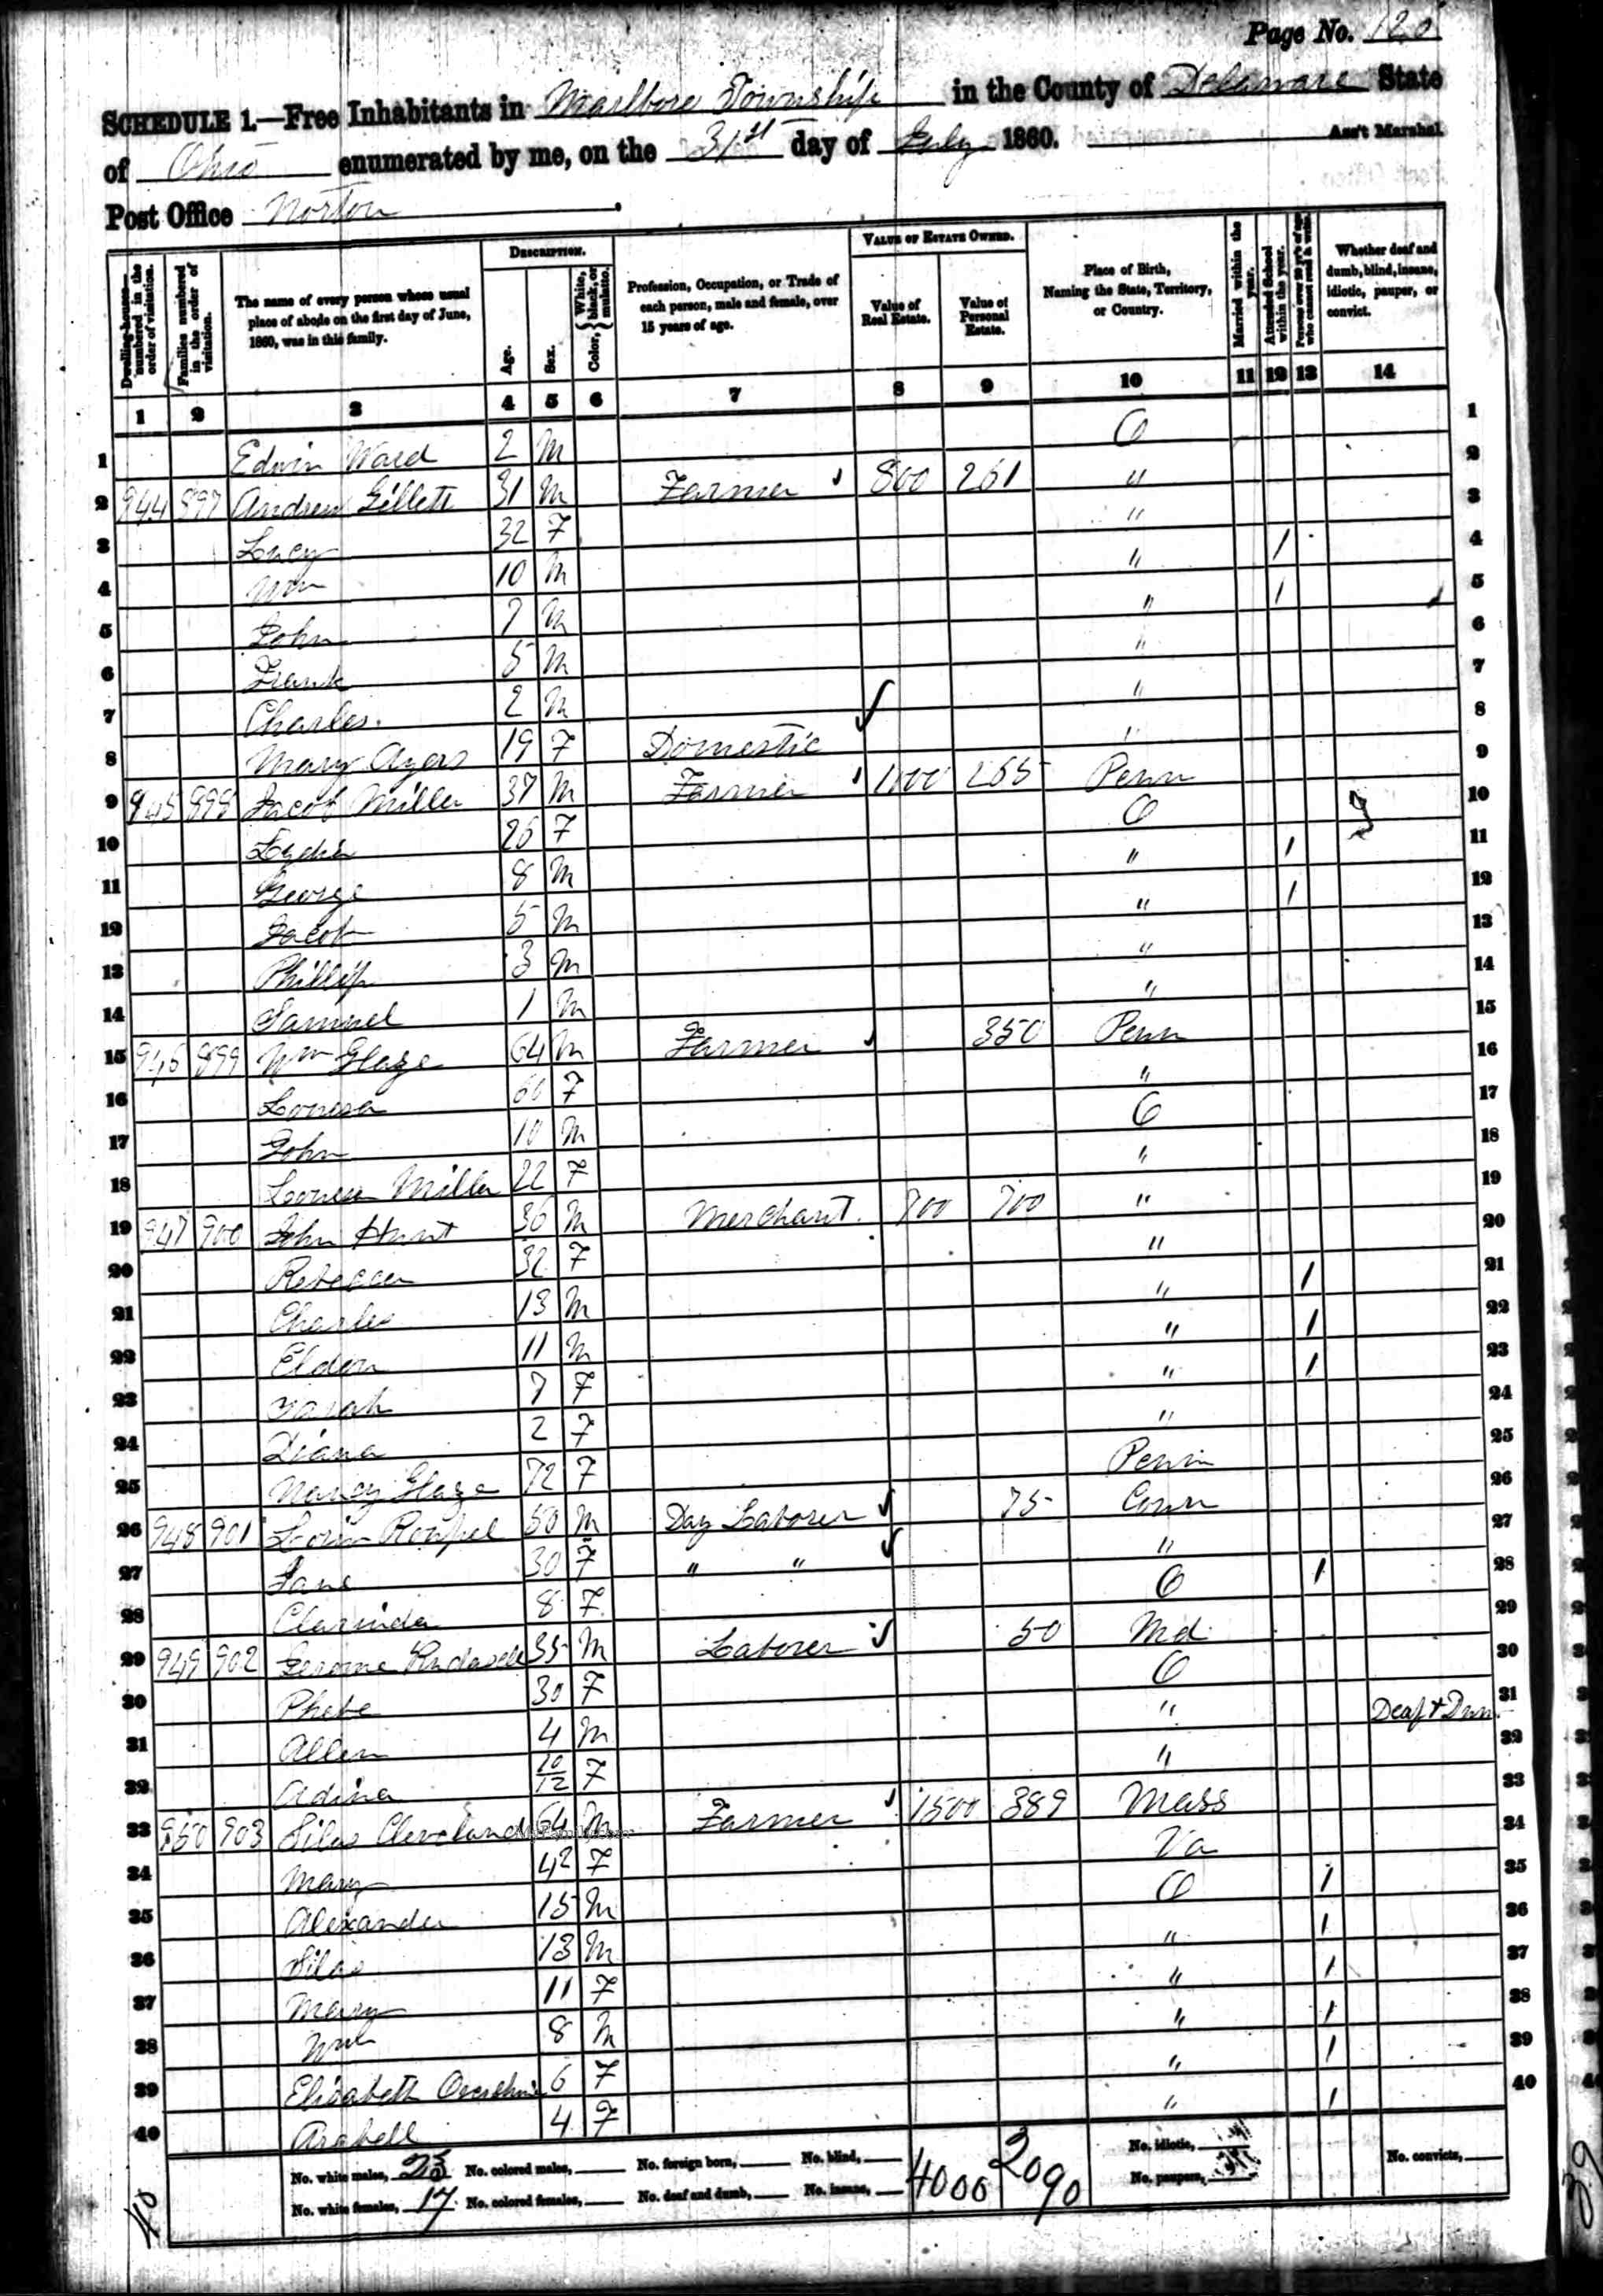 Page No. 120
SCHEDULE 1.—Free Inhabitants in Marlboro Township in the County of Delaware State
of Ohio enumerated by me, on the 31st day of July 1860. Ass't Marshal
Post Office Norton
Dwelling-houses—numbered in the order of visitation.
Families numbered in the order of visitation.
The name of every person whose usual place of abode on the first day of June, 1860, was in this family.
DESCRIPTION.
Age.
Sex.
Color, { White, black, or mulatto.
Profession, Occupation, or Trade of each person, male and female, over 15 years of age.
VALUE OF ESTATE OWNED.
Value of Real Estate.
Value of Personal Estate.
Place of Birth, Naming the State, Territory, or Country.
Married within the year.
Attended School within the year.
Persons over 20 y'rs of age who cannot read & write.
Whether deaf and dumb, blind, insane, idiotic, pauper, or convict.
1 2 3 4 5 6 7 8 9 10 11 12 13 14
1 Edwin Ward 2 M O 1
2 944 897 Andrew Gillett 31 M Farmer 800 261 " 2
3 Lucy 32 F " 3
4 Wm 10 M " 1 4
5 John 7 M " 1 5
6 Frank 5 M " 6
7 Charles. 2 M " 7
8 Mary Ayers 19 F Domestic " 8
9 945 898 Jacob Miller 37 M Farmer 1000 265 Penn 9
10 Lydia 26 F O 10
11 George 8 M " 1 11
12 Jacob 5 M " 1 12
13 Phillip 3 M " 13
14 Samuel 1 M " 14
15 946 899 Wm Glaze 64 M Farmer 350 Penn 15
16 Louesa 60 F " 16
17 John 10 M O 17
18 Louesa Miller 22 F " 18
19 947 900 John Hunt 36 M Merchant. 700 700 " 19
20 Rebecca 32 F " 20
21 Charles 13 M " 1 21
22 Eldon 11 M " 1 22
23 Sarah 7 F " 1 23
24 Diana 2 F " 24
25 Nancy Glaze 72 F Penn 25
26 948 901 50 M Day Laborer 75 Conn 26
27 Jane 30 F " " " 27
28 Clarinda 8 F O 1 28
29 949 902 Jerome 35 M Laborer 50 Md. 29
30 Phebe 30 F O 30
31 Allen 4 M " Deaf & Dum 31
32 Adina 10/12 F " 32
33 950 903 Silas Cleveland 64 M Farmer 1500 389 Mass 33
34 Mary 42 F Va 34
35 Alexander 15 M O 1 35
36 Silas 13 M " 1 36
37 Mary 11 F " 1 37
38 Wm 8 M " 1 38
39 Elisabeth 6 F " 1 39
40 Arabell 4 F " 1 40
No. white males, 23 No. colored males, No. foreign born, No. blind, 4000 2090 No. idiotic, No. convicts,
No. white females, 17 No. colored females, No. deaf and dumb, No. insane, No. paupers,
40
39